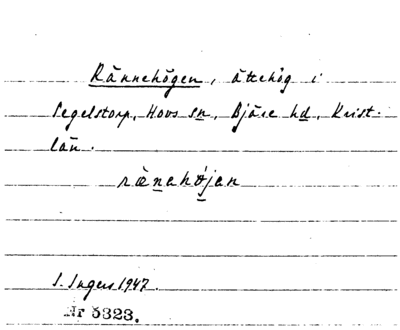 Rännehögen, ättehög i
Segelstorp, Hovs sn, Bjäre hd, Krist.
län.
rænehøjen
I. Ingers 1947.
Nr 5323.